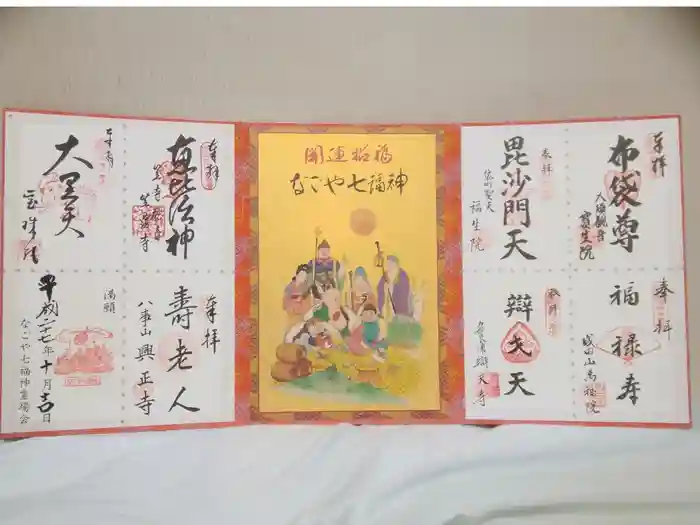 奉拝
布袋尊
大須観音
寳生院
奉拝
福禄寿
成田山萬福院
奉拝
毘沙門天
袋町聖天
福生院
奉拝
辯才天
辯天寺
開運招福
なごや七福神
奉拝
恵比須神
笠寺観音
笠覆寺
奉拝
寿老人
八事山興正寺
大黒天
宝珠院
満願
平成二十七年十月吉日
なごや七福神霊場会